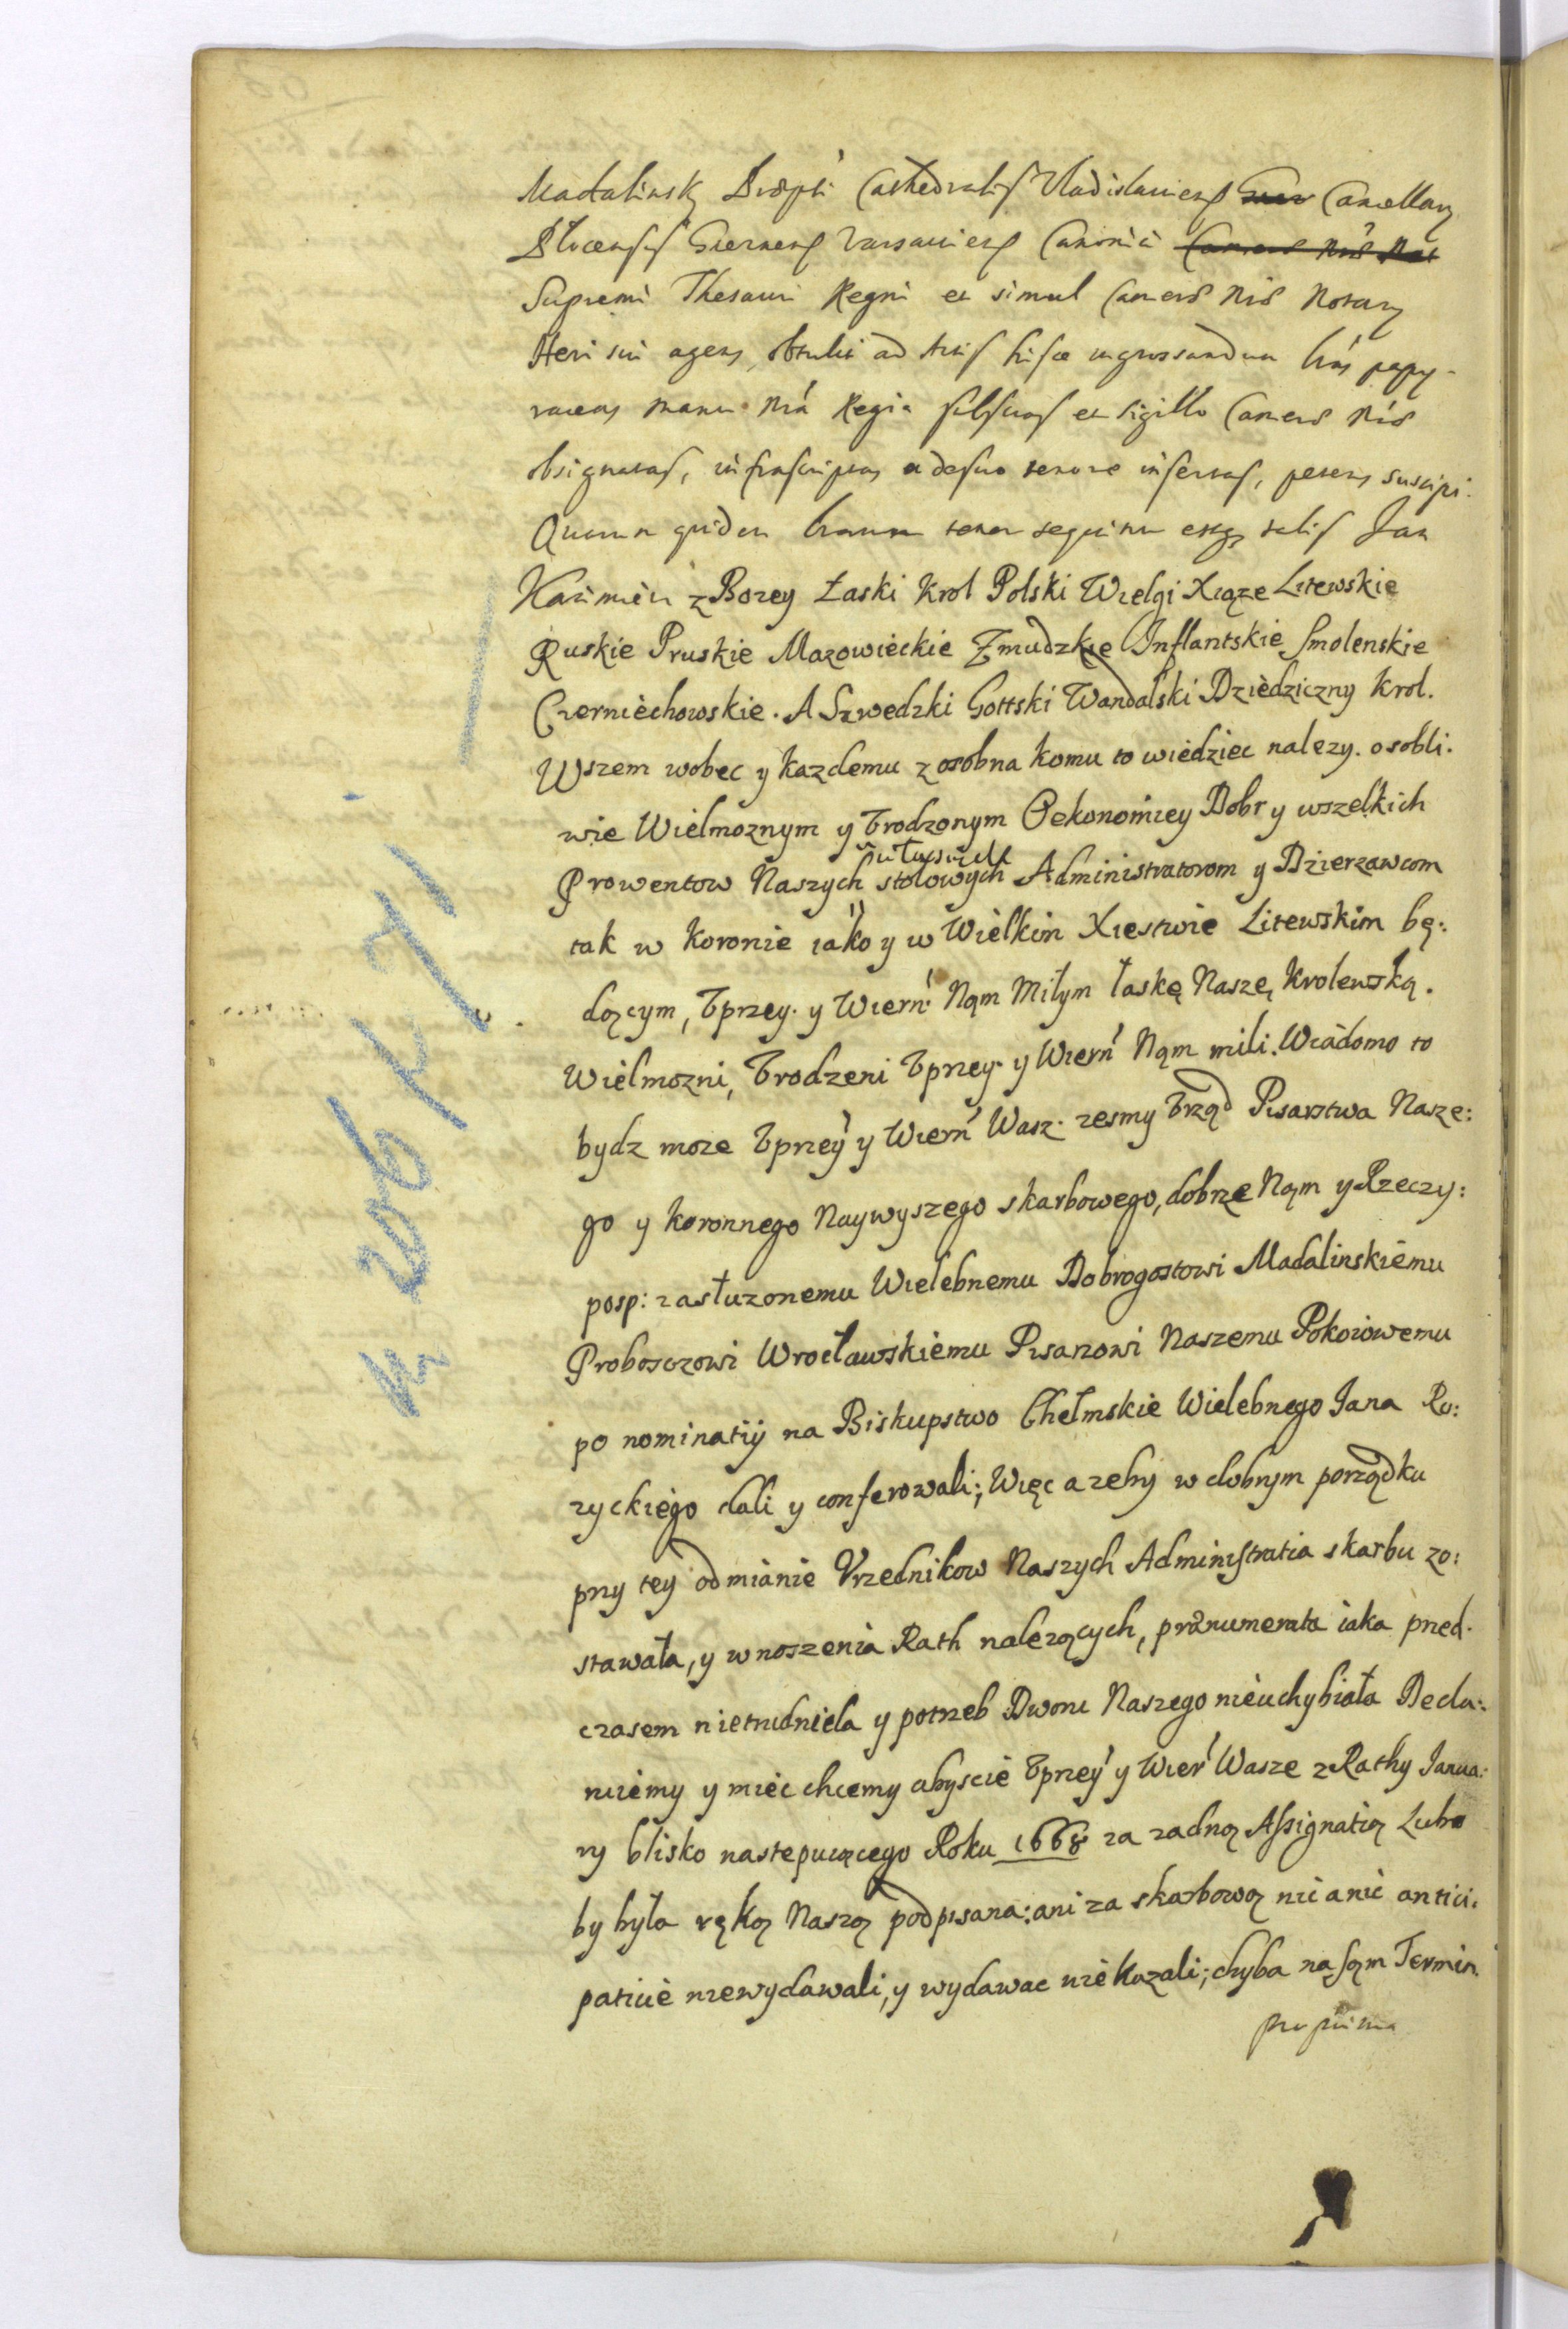 Madalinsky Præpti Cathedralis Vladislaviens Cancellary
Plocensis Varsaviens Canonici
Supremi Thesauri Regni et simul Cameræ Nræ Notary
Heri sui agens, obtulit ad Acta hisce ingrossandum Lras papy-
raceas manu Nrá Regia subscras et sigillo Cameræ Nræ
obsignatas, infrascriptas de tenore insertas, petens suscipi.
Quarum quidem Lrarum tenor sequitur estq talis Jan
Kazimierz z Bozey Łaski Krol Polski Wielgi Xiąze Litewskie
Ruskie Pruskie Mazowieckie Zmudzkie Inflantskie Smolenskie
Czerniechowskie. A Szwedzki Gottski Wandalski Dziedziczny Krol.
Wszem wobec y kazdemu z osobna komu to wiedziec nalezy. osobli.
wie Wielmoznym y Urodzonym Oekonomiey Dobr y wszelkich
Prowentow Naszych stolowych Administratorom y Dzierzawcom
tak w Koronie iako y w Wielkim Xiestwie Litewskim bę:
dącym, Uprzey. y Wiern: Nąm Miłym łaskę Naszę Krolewską.
Wielmozni, Urodzeni Uprzey. y Wiern Nąm mili. Wiadomo to
bydz moze Uprzey y Wiern Wasz. zesmy Urząd Pisarztwa Nasze:
go y koronnego Naywyszego skarbowego, dobrze Nąm y Rzeczy:
posp: zasłuzonemu Wielebnemu Dobrogostowi Madalinskiemu
Proboszczowi Wrocławskiemu Pisarzowi Naszemu Pokoiowemu
po nominatij na Biskupstwo Chełmskie Wielebnego Jana Ro:
zyckiego dali y conferowali; Więc azeby w dobrym porządku
przy tey odmianie Vrzednikow Naszych Administratia skarbu zo:
stawała, y wnoszenia Rath nalezących, prænumerata iaka przed.
czasem nietrudniela y potrzeb Dworu Naszego nieuchybiała Decla:
ruiemy y miec chcemy abyscie Uprzey y Wier Wasze z Rathy Janua:
ry blisko nastepuiącego Roku 1668 za zadną Assignatią Lubo
by była ręką Naszą podpisana: ani za skarbową nic a nic antici.
patiue niewydawali, y wydawac niekazali; chyba na sąm Termin.